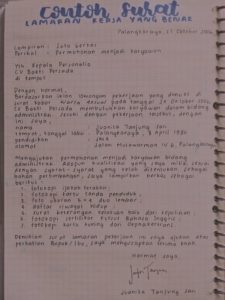 Contoh Surat
LAMARAN KERJA YANG BENAR
Palangkaraya, 27 Oktober
Lampiran : Satu berkas
Perihal : Permohonan menjadi karyawan
Yth. Kepala Personalia
CV Bakti Persada
di tempat
Dengan hormat,
Berdasarkan iklan lowongan pekerjaan yang dimuat di
surat kabar pada tanggal Oktober
CV Bakti Persada membutuhkan karyawan dalam bidang
administrasi. Sesuai dengan pekerjaan tersebut, dengan
ini saya,
nama : Juanita Tanjung Sari
tempat, tanggal lahir : Palangkaraya, 8 April 1980
pendidikan :
alamat : Jalan Palangkaraya
Mengajukan permohonan menjadi karyawan bidang
administrasi. Adapun kualifikasi yang saya miliki sesuai
dengan syarat-syarat yang telah ditentukan. Sebagai
bahan pertimbangan, saya lampirkan berkas sebagai
berikut :
1. fotokopi ijazah terakhir;
2. fotokopi kartu tanda penduduk;
3. foto ukuran 3x4 dua lembar;
4. daftar riwayat hidup;
5. surat keterangan kelakuan baik dari kepolisian;
6. fotokopi sertifikat kursus Bahasa Inggris;
7. fotokopi kartu kuning dari
Demikian surat lamaran pekerjaan ini saya ajukan atas
perhatian Bapak/Ibu, saya mengucapkan terima kasih.
Hormat saya,
Juanita Tanjung Sari